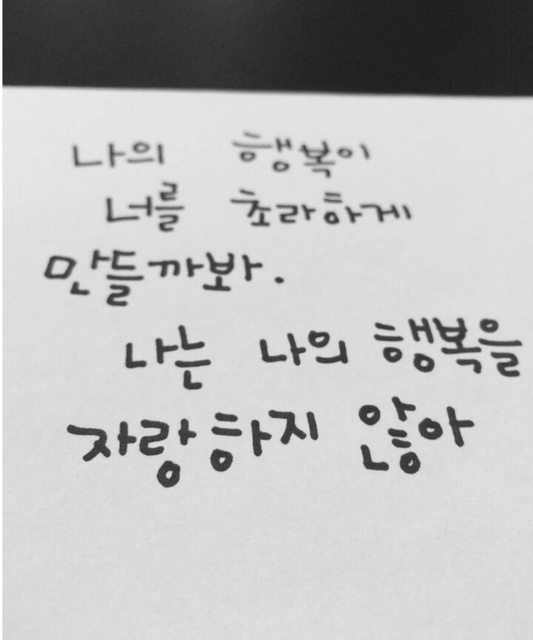 나의 행복이
너를 초라하게
만들까봐.
나는 나의 행복을
자랑하지 않아